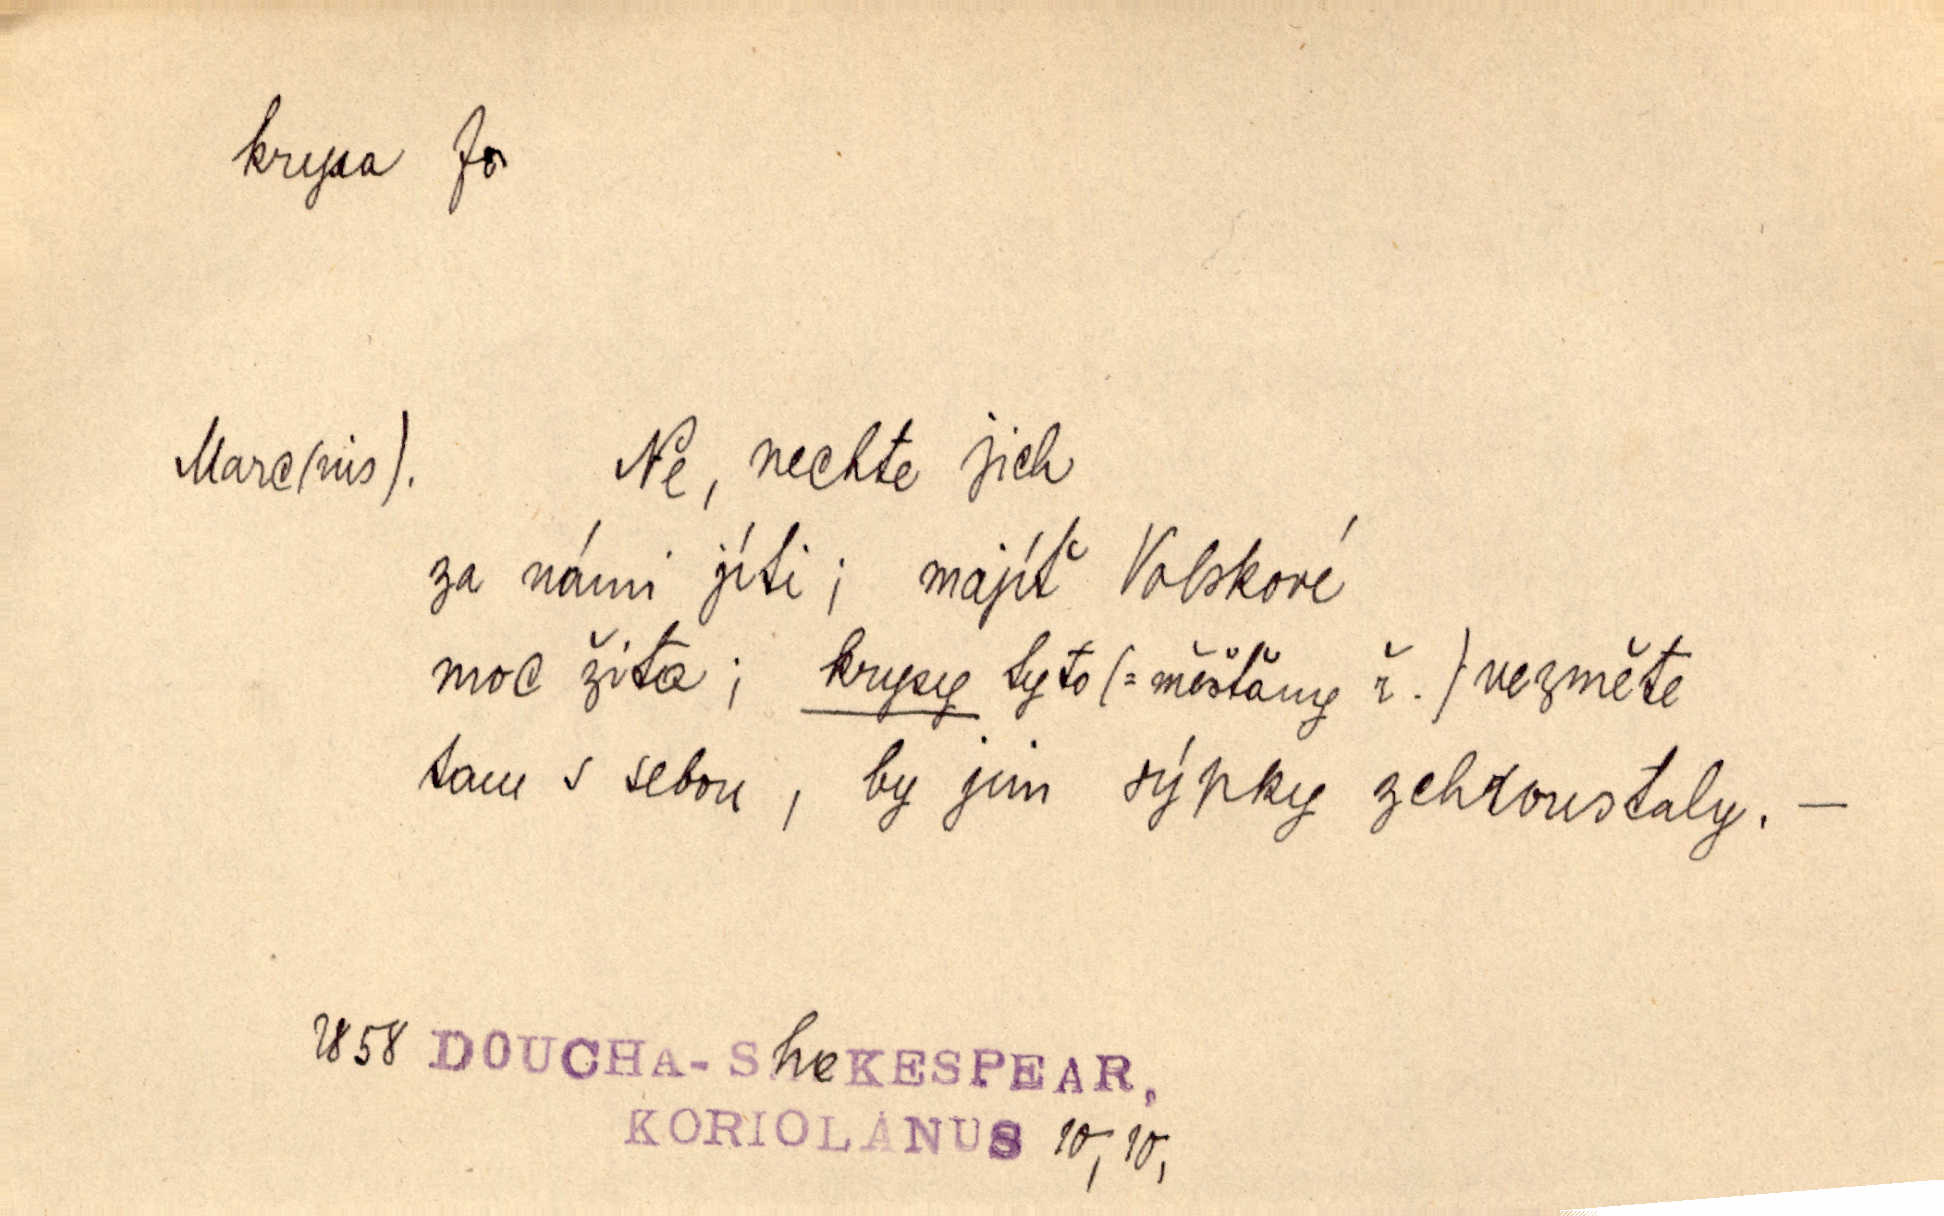 krysa fo
Marc(ius). Ne, nechte jich
za námi jíti; majíť Volskové
moc žita; krysy tyto (= měšťany ř.) vezměte
tam s sebou, by jim sýpky zchroustaly. —
1858 DOUCHA-ShaKESPEAR,
KORIOLANUS 10, 10,